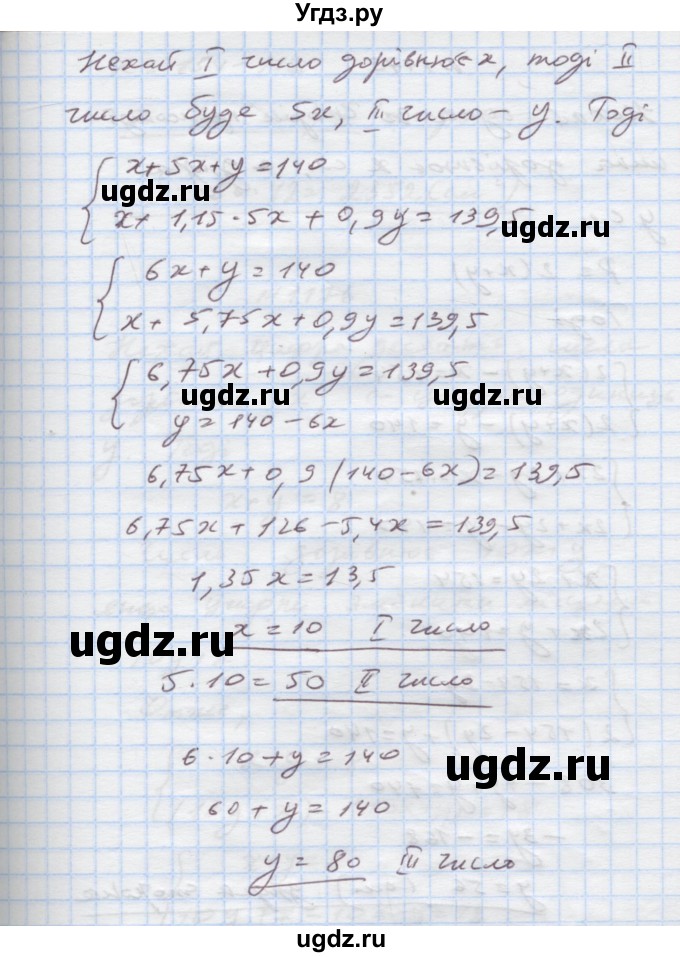 Угдз.ру
Нехай I число дорівнює x, тоді II
число буде 5x, III число – y. Тоді
x+5x+y=140
ugdz.ru
x+ 1,15·5x + 0,9y = 139,5
ugdz.ru
6x+y=140
x+ 5,75x+0,9y=139,5
6,75x+0,9y=139,5
ugdz.ru ugdz.ru
y=140-6x
6,75x+0,9(140-6x)=139,5
6,75x+126-5,4x=139,5
1,35x=13,5
x=10 I число
ugdz.ru
5·10=50 II число
6·10+y=140
ugdz.ru
60+y=140
y=80 III число
ugdz.ru
ugdz.ru